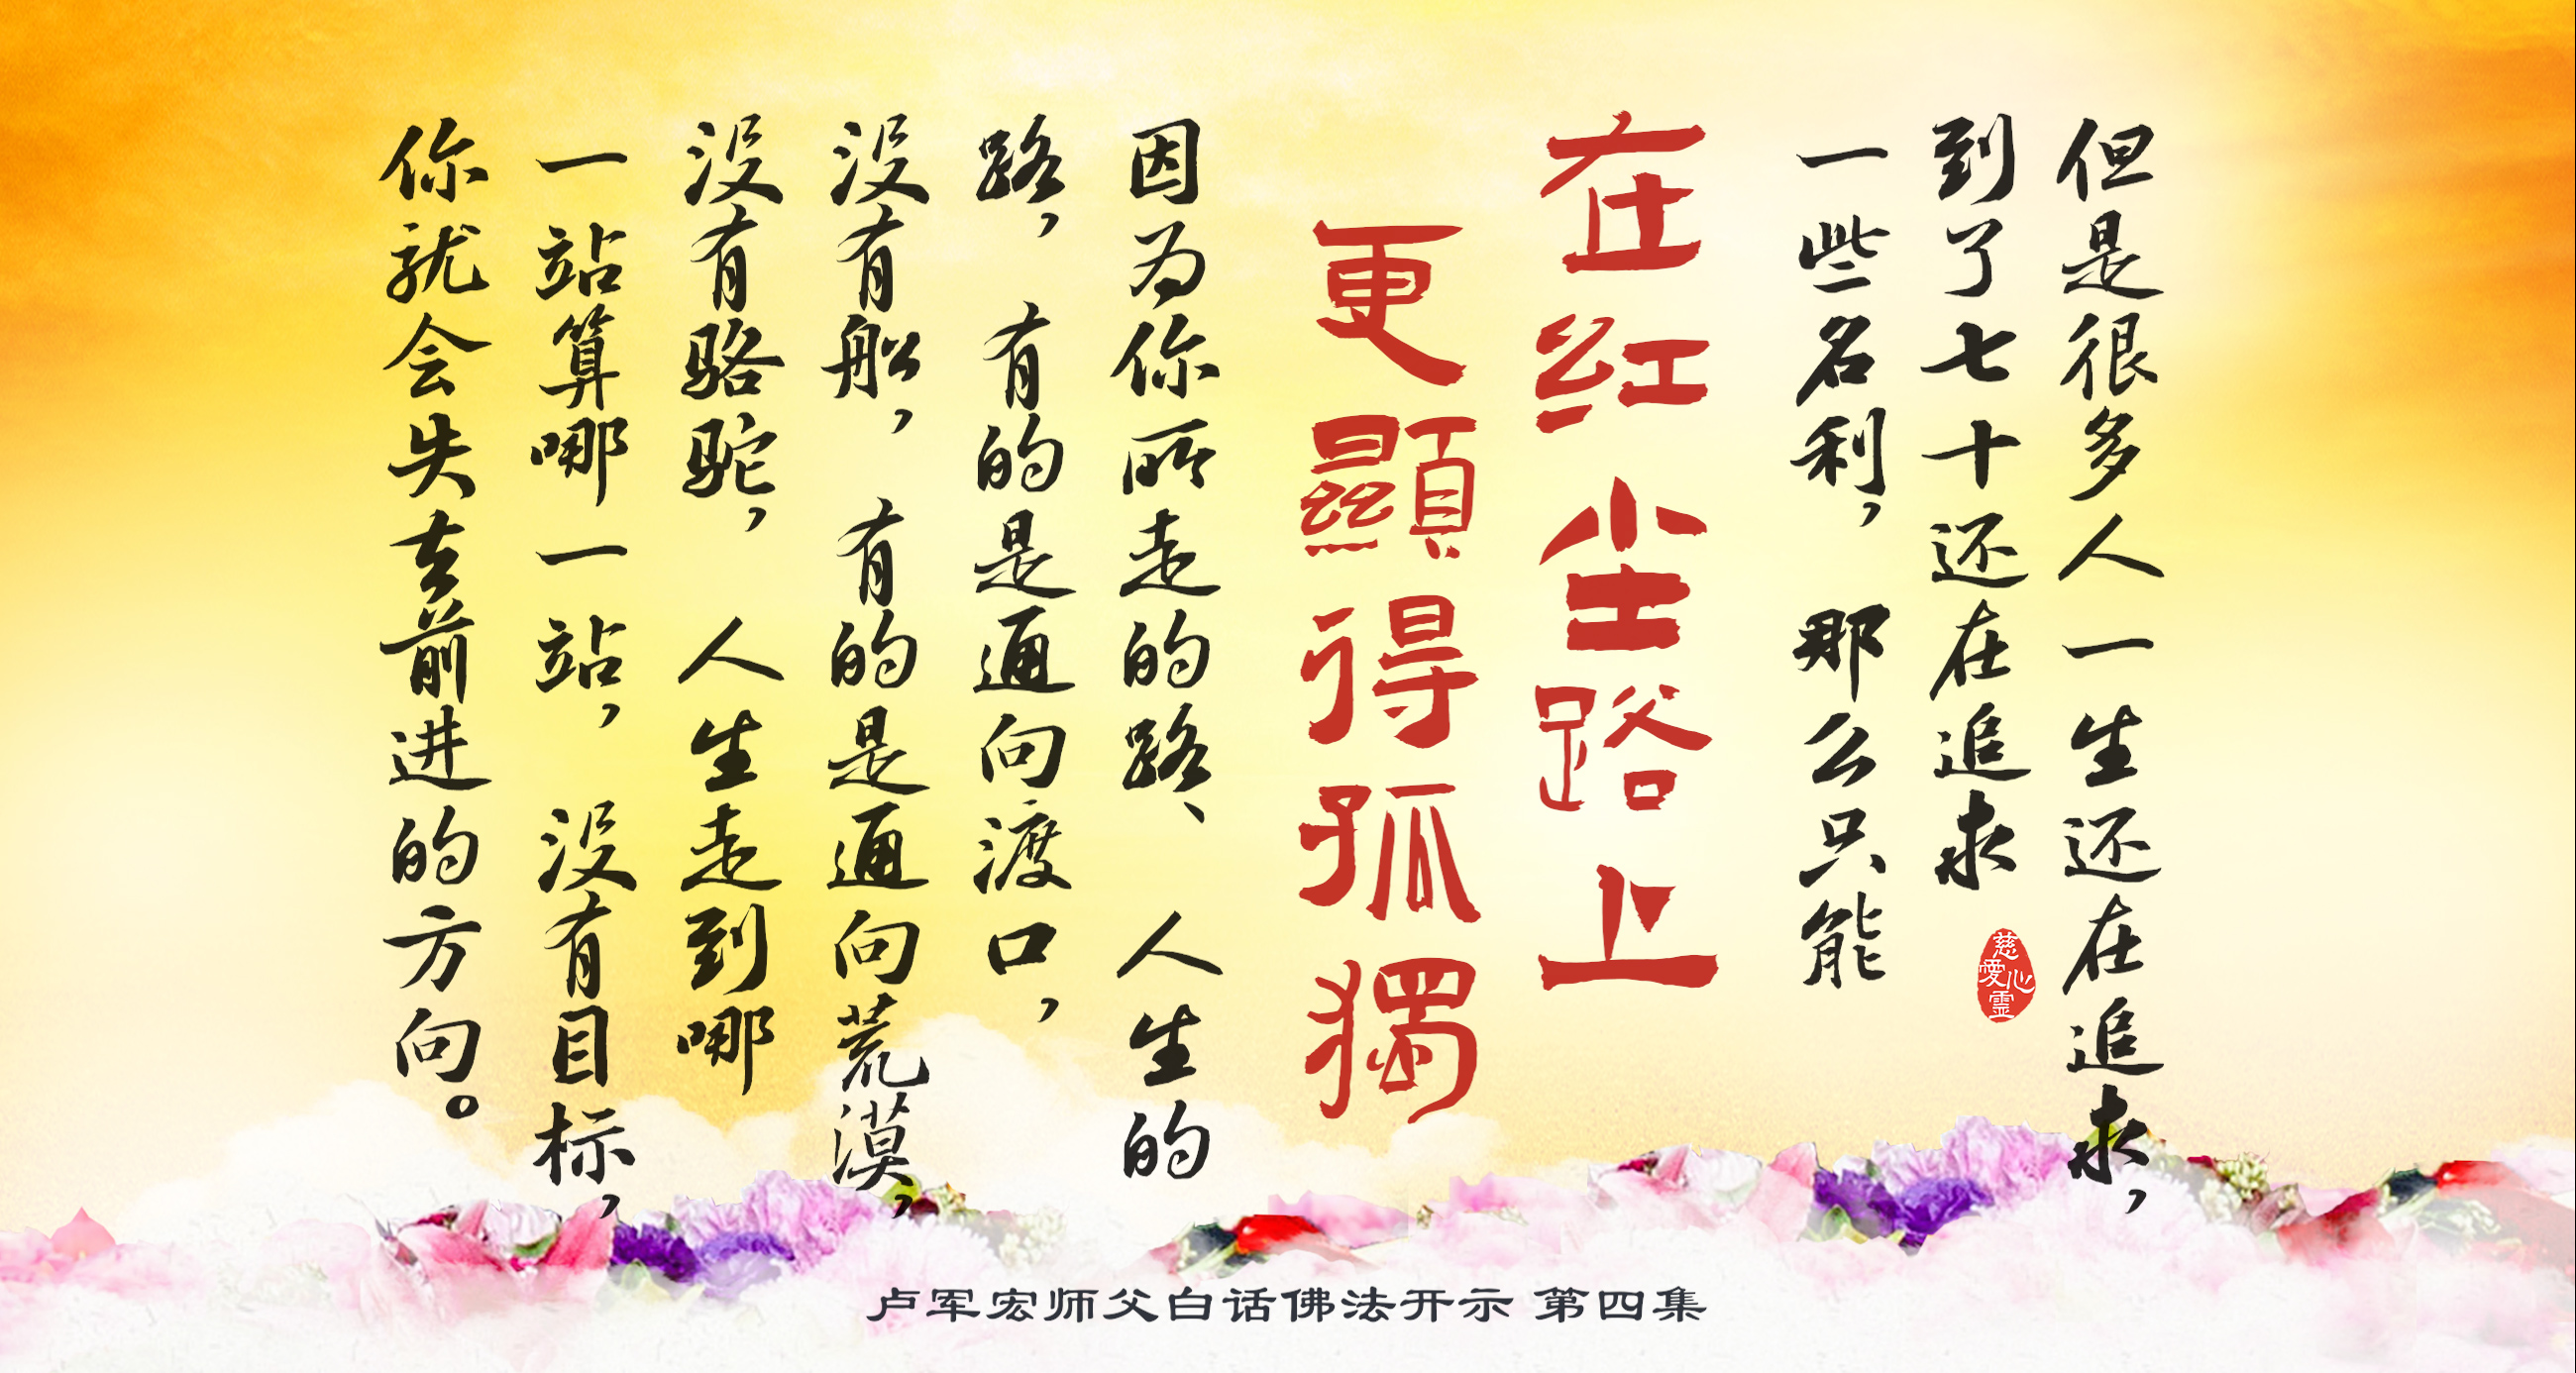 但是很多人一生还在追求，
到了七十还在追求
一些名利，那么只能
在红尘路上
更顯得孤獨
因为你所走的路、人生的
路，有的是通向渡口，
没有船，有的是通向荒漠，
没有骆驼，人生走到哪
一站算哪一站，没有目标，
你就会失去前进的方向。
慈心愛靈
卢军宏师父白话佛法开示 第四集